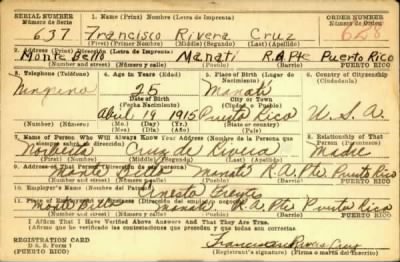 SERIAL NUMBER 1. NAME (Print) Nombre (Letra de Imprenta) ORDER NUMBER
Número de Serie Número de Orden
637 Francisco Rivera Cruz 628
(First) (Primer Nombre) (Middle) (Segundo) (Last) (Apellido)
2. ADDRESS (Print) Dirección (Letra de Imprenta)
Monte Bello Manatí R.A. Pte Puerto Rico
(Number and street) (Número y calle) (Town) (Pueblo) PUERTO RICO
3. Telephone (Teléfono) 4. Age in Years (Edad) 5. Place of Birth (Lugar de Nacimiento) 6. Country of Citizenship (Ciudadanía)
Ninguno 25 Manatí
DATE OF BIRTH (Fecha Nacimiento) City or Town (Ciudad o Pueblo)
Abril 19 1915 Puerto Rico U.S.A.
(Mo.) (Day) (Yr.) State or country
(Mes) (Día) (Año) (Estado o país)
7. Name of Person Who Will Always Know Your Address (Nombre de la Persona que siempre sabrá su dirección) 8. Relationship of That Person (Parentesco)
Cruz de Rivera Madre
(First) (Primer Nombre) (Middle) (Segundo) (Last) (Apellido)
9. Address of That Person (Dirección de esa Persona)
Monte Bello Manatí R.A. Pte Puerto Rico
(Number and street) (Número y calle) (Town) (Pueblo) PUERTO RICO
10. Employer's Name (Nombre del Patrono)
Ernesto
11. Place of Employment
Monte Bello Manatí R.A. Pte Puerto Rico
(Number and street) (Número y calle) (Town) (Pueblo) PUERTO RICO
I Affirm That I Have Verified Above Answers and That They Are True.
(Afirmo que he verificado las contestaciones que preceden y que todas son correctas)
REGISTRATION CARD Francisco Rivera Cruz
D. S. S. Form 1 Registrant's signature (Firma o marca del Inscrito)
(Tarjeta de Inscripción)